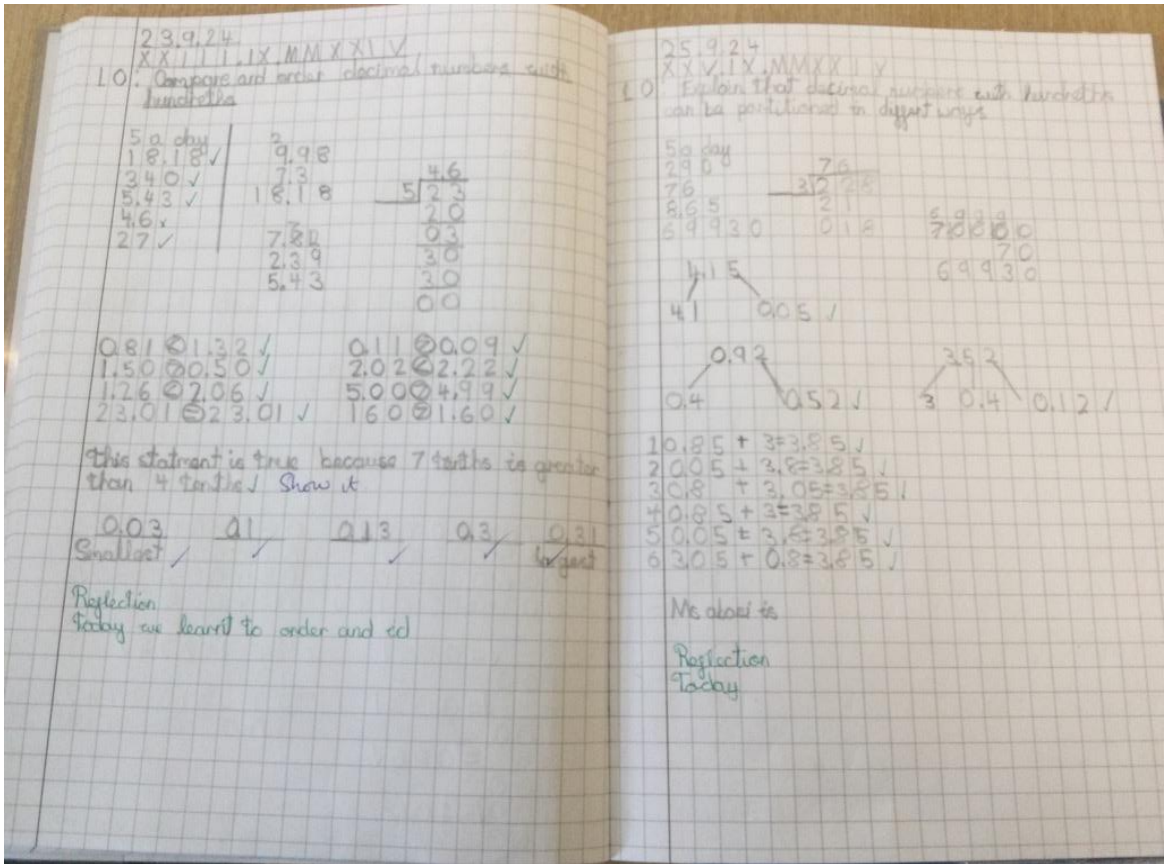 23.9.24
XXIII.IX.MMXXIV
LO: Compare and order decimal numbers with
hundreths
5 a day
18.18 ✓
340 ✓
5.43 ✓
4.6 x
27 ✓
2
9.98
7.3
18.18
7.82
2.39
5.43
4.6
5 23
20
03
30
30
00
0.81 < 1.32 ✓
1.50 > 0.50 ✓
1.26 < 2.06 ✓
23.01 = 23.01 ✓
0.11 > 0.09 ✓
2.02 < 2.22 ✓
5.00 > 4.99 ✓
160 > 1.60 ✓
this statment is true because 7 tenths is greater
than 4 tenths ✓ Show it
0.03 0.1 0.13 0.3 0.31
Smallest ✓ ✓ ✓ ✓ largest
Reflection
Today we learnt to order and cd
25.9.24
XXV.IX.MMXXIV
LO: Explain that decimal numbers with hundreths
can be partitioned in diffent ways
5 a day
290
76
8.65
69930
76
3 228
21
018
70
69930
4.15
4.1 0.05 ✓
0.92
0.4 0.52 ✓
3.52
3 0.4 0.12 ✓
1 0.85 + 3=3.85 ✓
2 0.05 + 3.8=3.85 ✓
3 0.8 + 3.05=3.85 ✓
4 0.85 + 3=3.85 ✓
5 0.05 + 3.8=3.85 ✓
6 3.05 + 0.8=3.85 ✓
Ms is
Reflection
Today